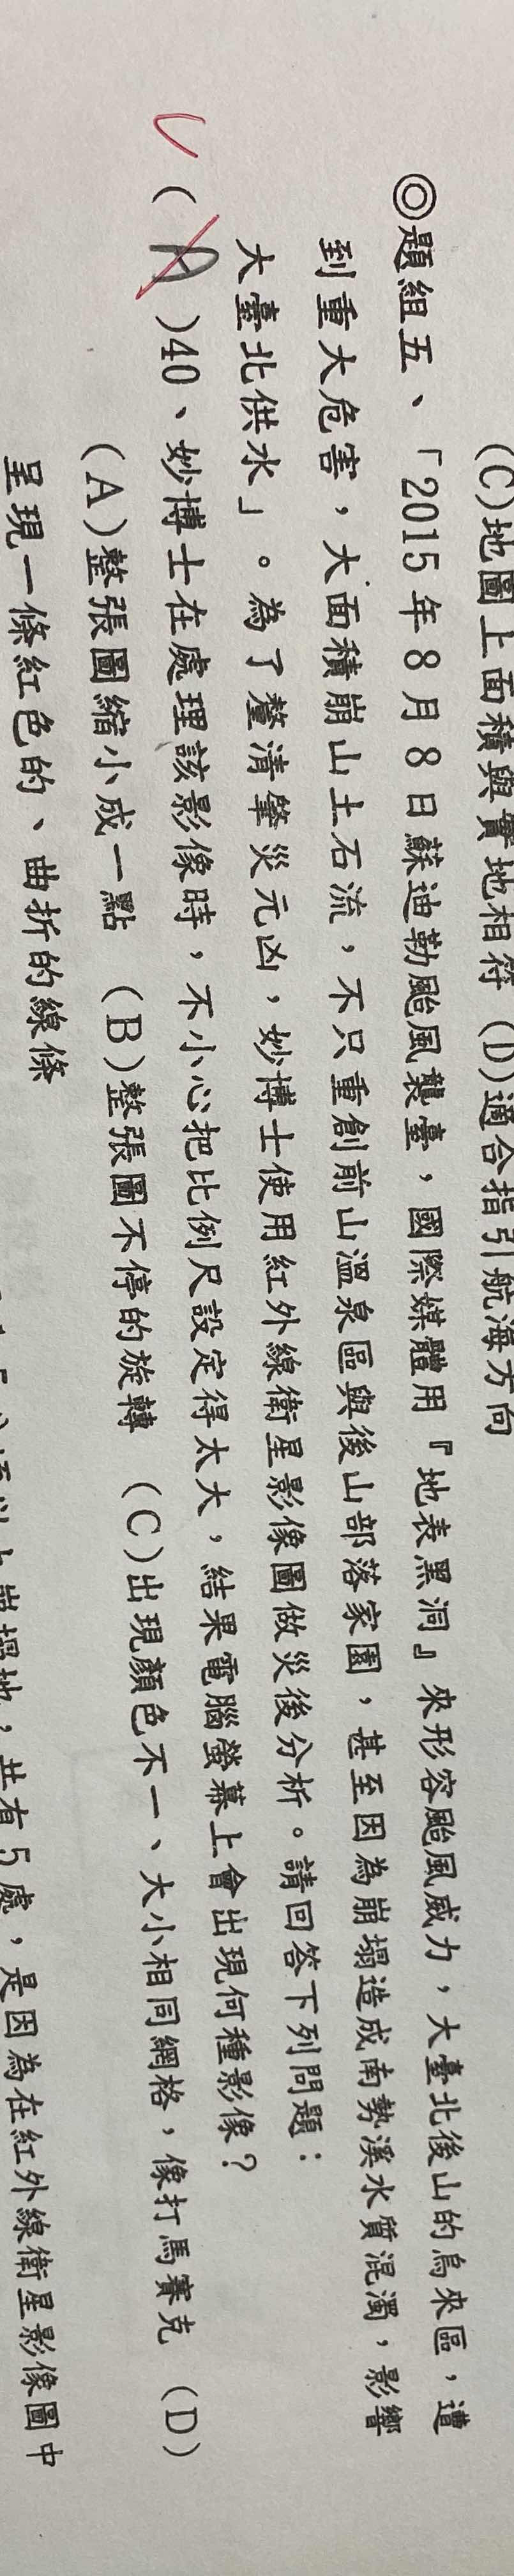 (C)地圖上面積與實地相符 (D)適合指引航海方向
◎題組五、「2015年8月8日蘇迪勒颱風襲臺，國際媒體用『地表黑洞』來形容颱風威力，大臺北後山的烏來區，遭
到重大危害，大面積崩山土石流，不只重創前山溫泉區與後山部落家園，甚至因為崩塌造成南勢溪水質混濁，影響
大臺北供水」。為了釐清肇災元凶，妙博士使用紅外線衛星影像圖做災後分析。請回答下列問題：
(A)40、妙博士在處理該影像時，不小心把比例尺設定得太大，結果電腦螢幕上會出現何種影像？
(A)整張圖縮小成一點 (B)整張圖不停的旋轉 (C)出現顏色不一、大小相同網格，像打馬賽克 (D)
呈現一條紅色的、曲折的線條
崩塌地，共有5處，是因為在紅外線衛星影像圖中